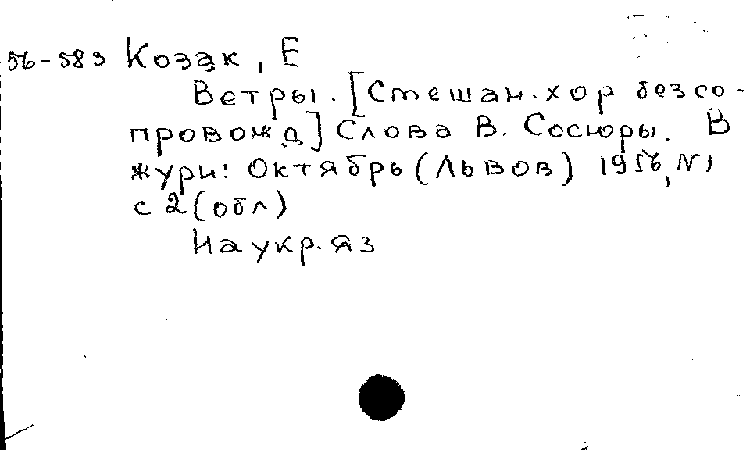 56-583 Козак, Е
Ветры. [Смешан. хор без со-
провожд] Слова В. Сосюры. В
журн: Октябрь (Львов) 1956, N1
с 2 (обл)
На укр. яз